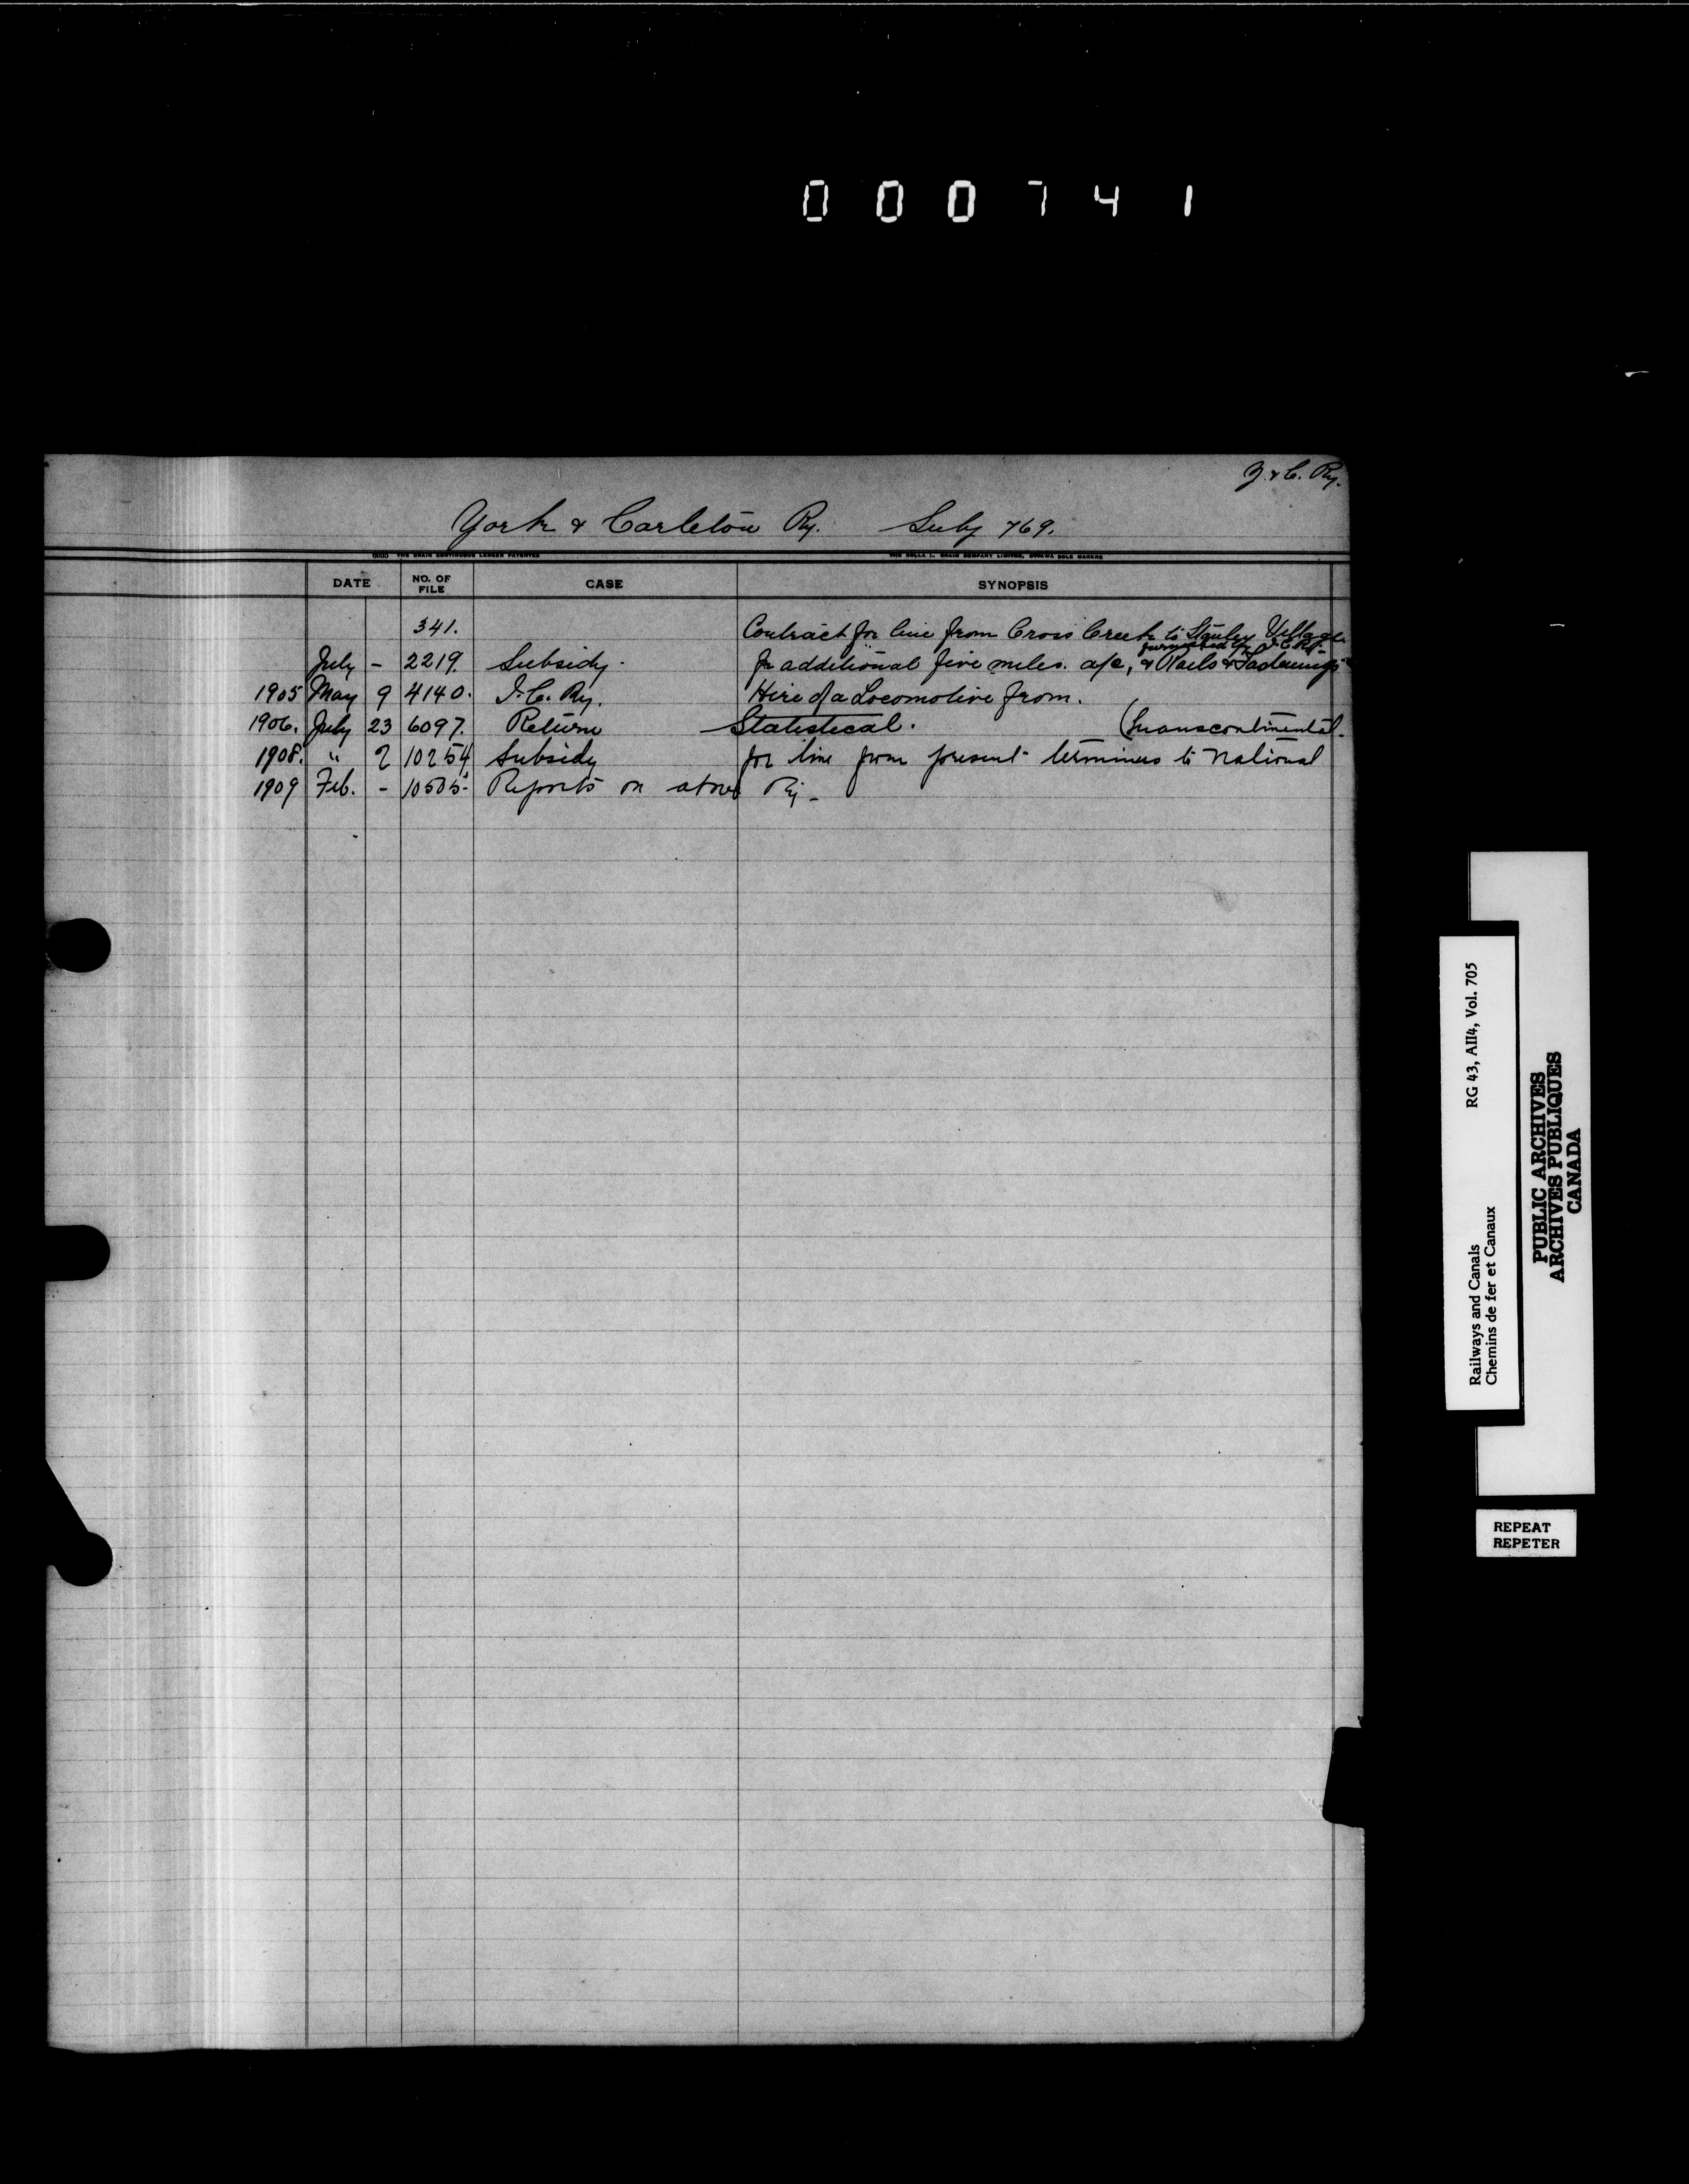 000741
Y. & C. Ry.
York & Carleton Ry. Suby 769.
THE GRAIN CONTINUOUS LEDGER PATENTED THE ROLLA L. CRAIN COMPANY LIMITED, OTTAWA SOLE MAKERS
DATE NO. OF FILE CASE SYNOPSIS
341. Contract for line from Cross Creek to Stanley Village
furnished by I.C. Ry.
July - 2219. Subsidy. for additional five miles. a/c, & Rails & Fastenings
1905 May 9 4140. I.C. Ry. Hire of a Locomotive from.
1906. July 23 6097. Return Statistical. (Transcontinental.
1908. " 2 10254 Subsidy for line from present terminus to National
1909 Feb. - 10505 Reports on above Ry -
Railways and Canals RG 43, AII4, Vol. 705
Chemins de fer et Canaux
PUBLIC ARCHIVES
ARCHIVES PUBLIQUES
CANADA
REPEAT
REPETER